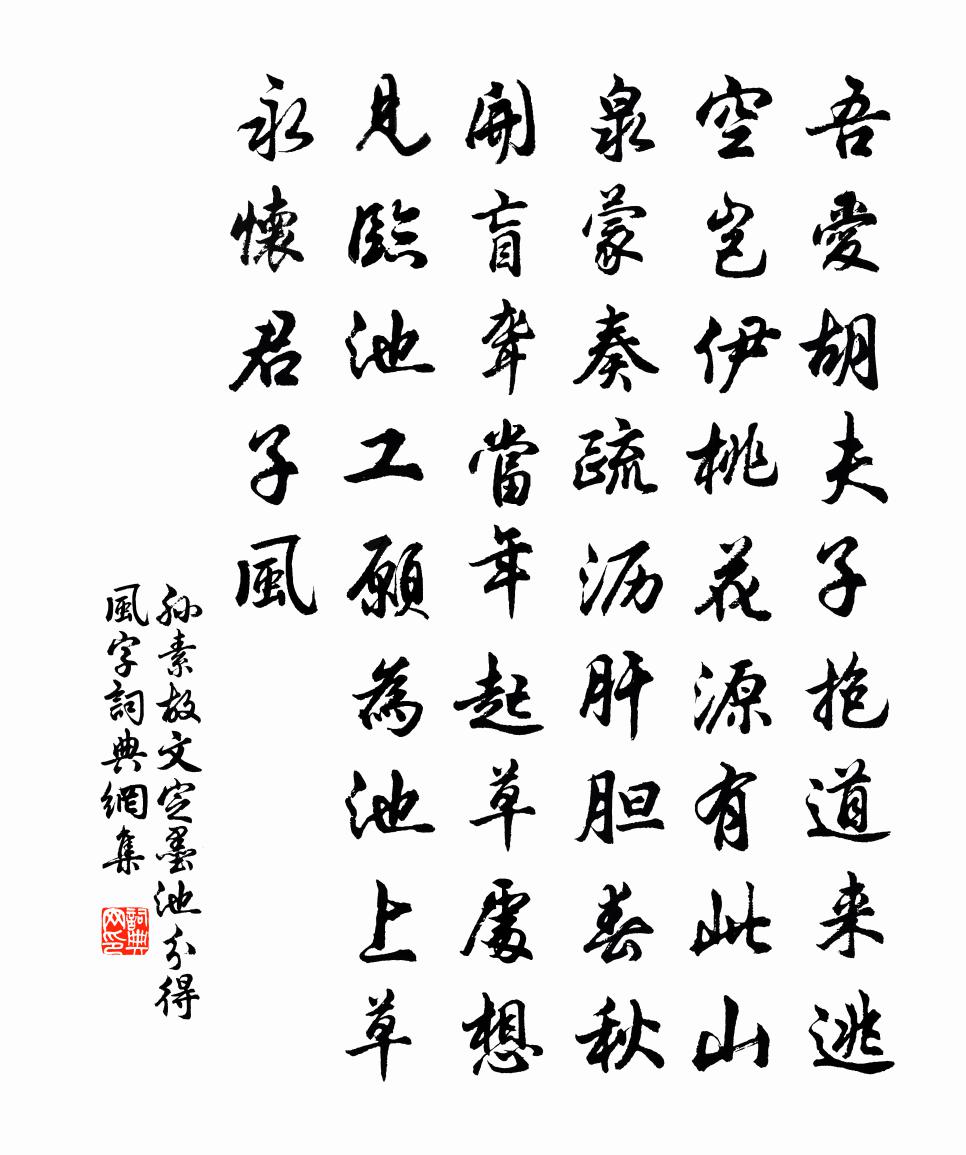 吾愛胡夫子抱道来逃
空岂伊桃花源有此山
泉蒙奏疏沥肝胆春秋
開盲聋當年起草處想
見臨池工願為池上草
永懷君子風
孙素故文定墨池分得
風字詞典網集
詞典网印